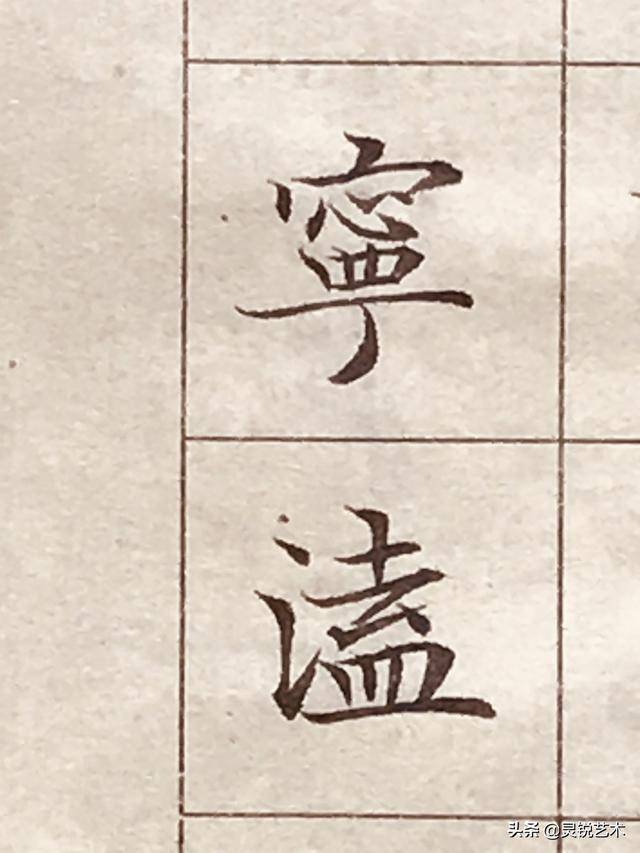 寧
溘
头条 @灵锐艺术